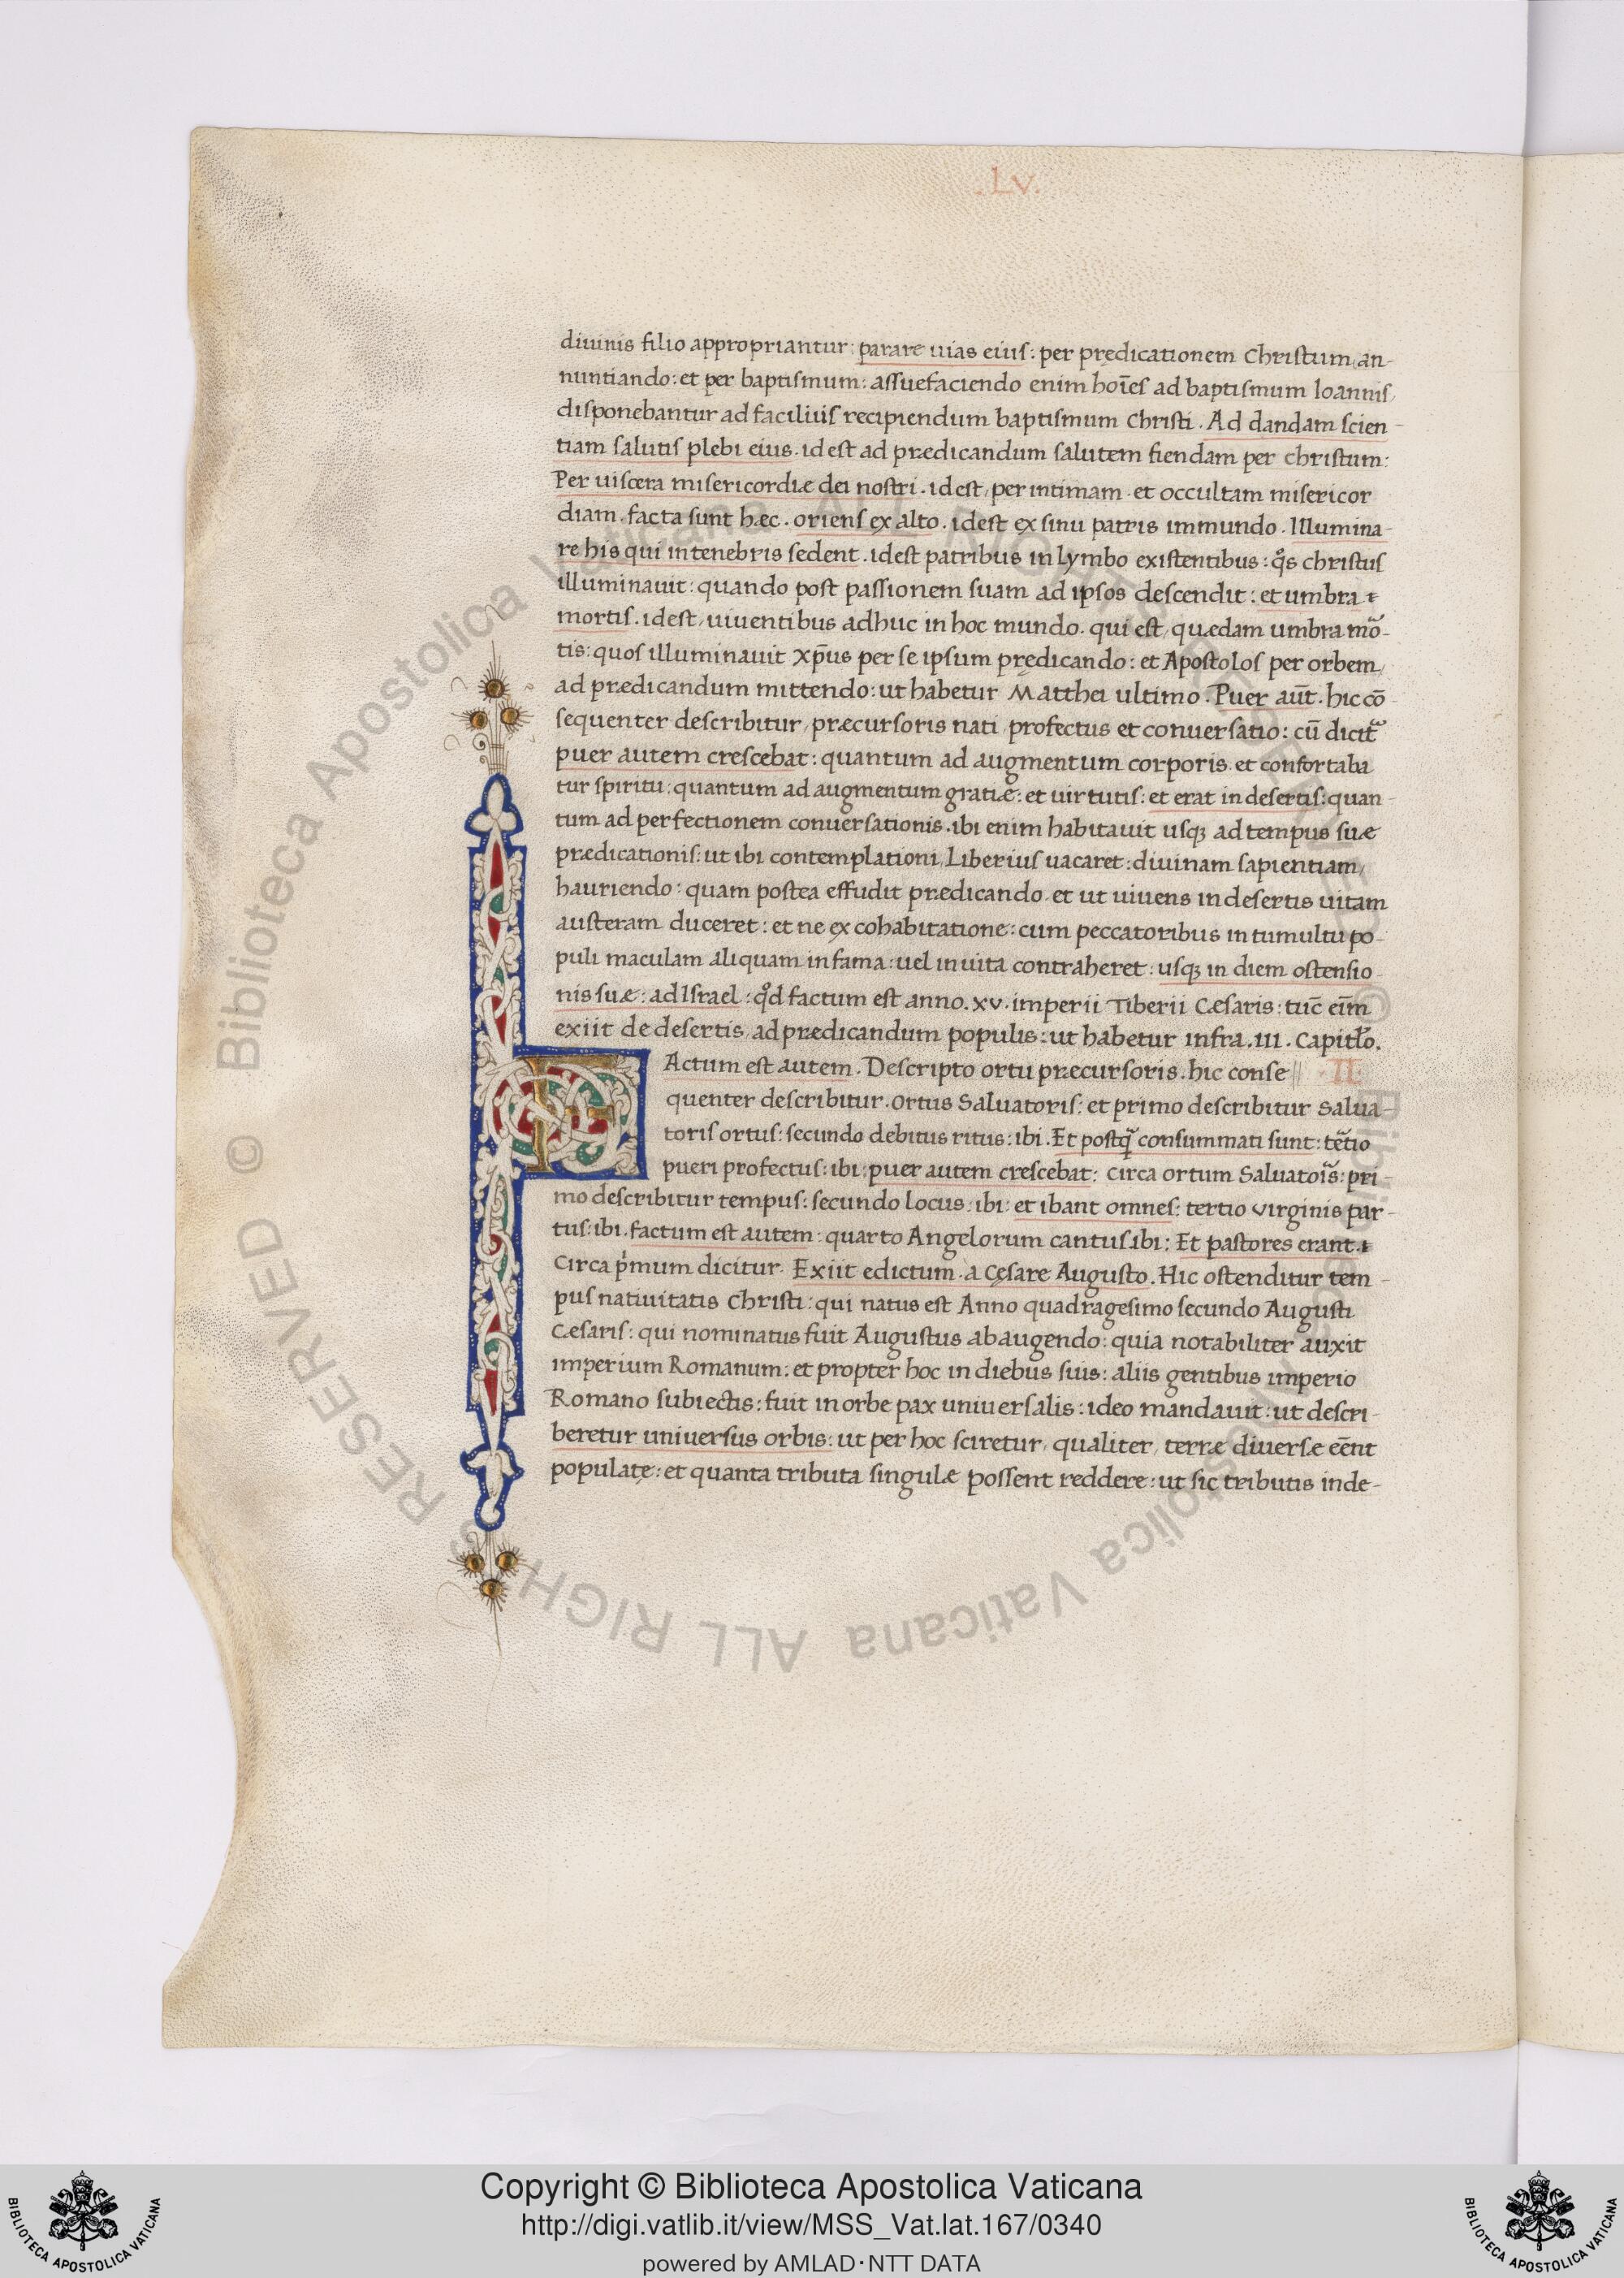 .Lv.
diuinis filio appropriantur: parare uias eius: per prędicationem Christum, an-
nuntiando: et per baptismum: assuefaciendo enim hoīes ad baptismum Ioannis,
disponebantur ad facilius recipiendum baptismum Christi. Ad dandam scien-
tiam salutis plebi eius. idest ad prædicandum salutem fiendam per christum:
Per uiscera misericordiæ dei nostri. idest, per intimam et occultam misericor
diam facta sunt hæc. oriens ex alto. idest ex sinu patris immundo. Illumina-
re his qui intenebris sedent. idest patribus in lymbo existentibus: qͦs christus
illuminauit: quando post passionem suam ad ipsos descendit: et umbra
mortis. idest, uiuentibus adhuc in hoc mundo. qui est, quædam umbra mo᷑-
tis: quos illuminauit xp̄us per se ipsum prędicando: et Apostolos per orbem,
ad prædicandum mittendo: ut habetur Matthei ultimo. Puer aūt. hic cō
sequenter describitur, præcursoris nati, profectus et conuersatio: cū dicit᷑
puer autem crescebat: quantum ad augmentum corporis. et confortaba
tur spiritu: quantum ad augmentum gratiæ: et uirtutis: et erat in desertis: quan-
tum ad perfectionem conuersationis. ibi enim habitauit usqꝫ ad tempus suæ
prædicationis: ut ibi contemplationi, Liberius uacaret: diuinam sapientiam,
hauriendo: quam postea effudit prædicando. et ut uiuens in desertis uitam
austeram duceret: et ne ex cohabitatione: cum peccatoribus in tumultu po-
puli maculam aliquam in fama: uel in uita contraheret: usqꝫ in diem ostensio
nis suæ: ad Israel: qͦd factum est anno. xv. imperii Tiberii Cæsaris: tuc̄ ei̅m
exiit de desertis, ad prædicandum populis: ut habetur infra. III. Capitl̄o.
FActum est autem. Descripto ortu præcursoris. hic conse .II.
quenter describitur. ortus Saluatoris: et primo describitur Salua-
toris ortus: secundo debitus ritus: ibi. Et postq̄ consummati sunt: te᷑tio
pueri profectus: ibi: puer autem crescebat: Circa ortum Saluatoi᷑s: pri-
mo describitur tempus: secundo Locus: ibi: et ibant omnes: tertio virginis par-
tus: ibi. factum est autem: quarto Angelorum cantus. ibi: Et pastores erant.
Circa pͥmum dicitur. Exiit edictum. a Cęsare Augusto. Hic ostenditur tem-
pus natiuitatis Christi: qui natus est Anno quadragesimo secundo Augusti
Cæsaris: qui nominatus fuit Augustus ab augendo: quia notabiliter auxit
imperium Romanum: et propter hoc in diebus suis: aliis gentibus imperio
Romano subiectis: fuit in orbe pax uniuersalis: ideo mandauit: ut descri-
beretur uniuersus orbis: ut per hoc sciretur, qualiter, terræ diuersæ eēnt
populatę: et quanta tributa singulæ possent reddere: ut sic tributis inde-
© Biblioteca Apostolica Vaticana ALL RIGHTS RESERVED
© Biblioteca Apostolica Vaticana ALL RIGHTS RESERVED
Copyright © Biblioteca Apostolica Vaticana
http://digi.vatlib.it/view/MSS_Vat.lat.167/0340
powered by AMLAD·NTT DATA
BIBLIOTECA APOSTOLICA VATICANA
BIBLIOTECA APOSTOLICA VATICANA